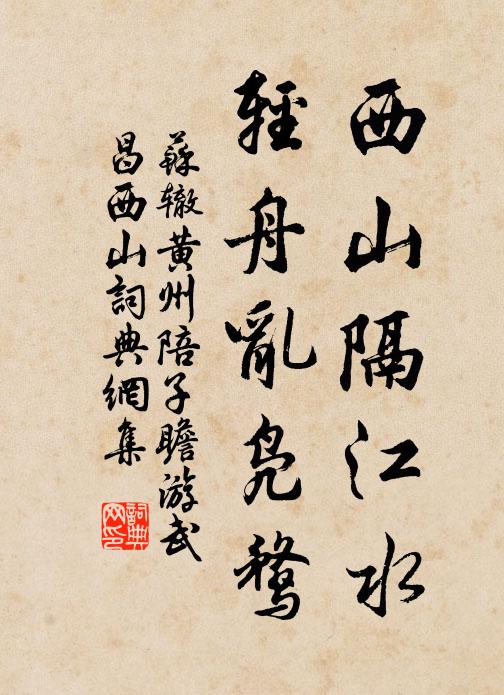 西山隔江水
輕舟亂鳧鶩
蘇辙黄州陪子瞻游武
昌西山詞典網集
詞典
网印